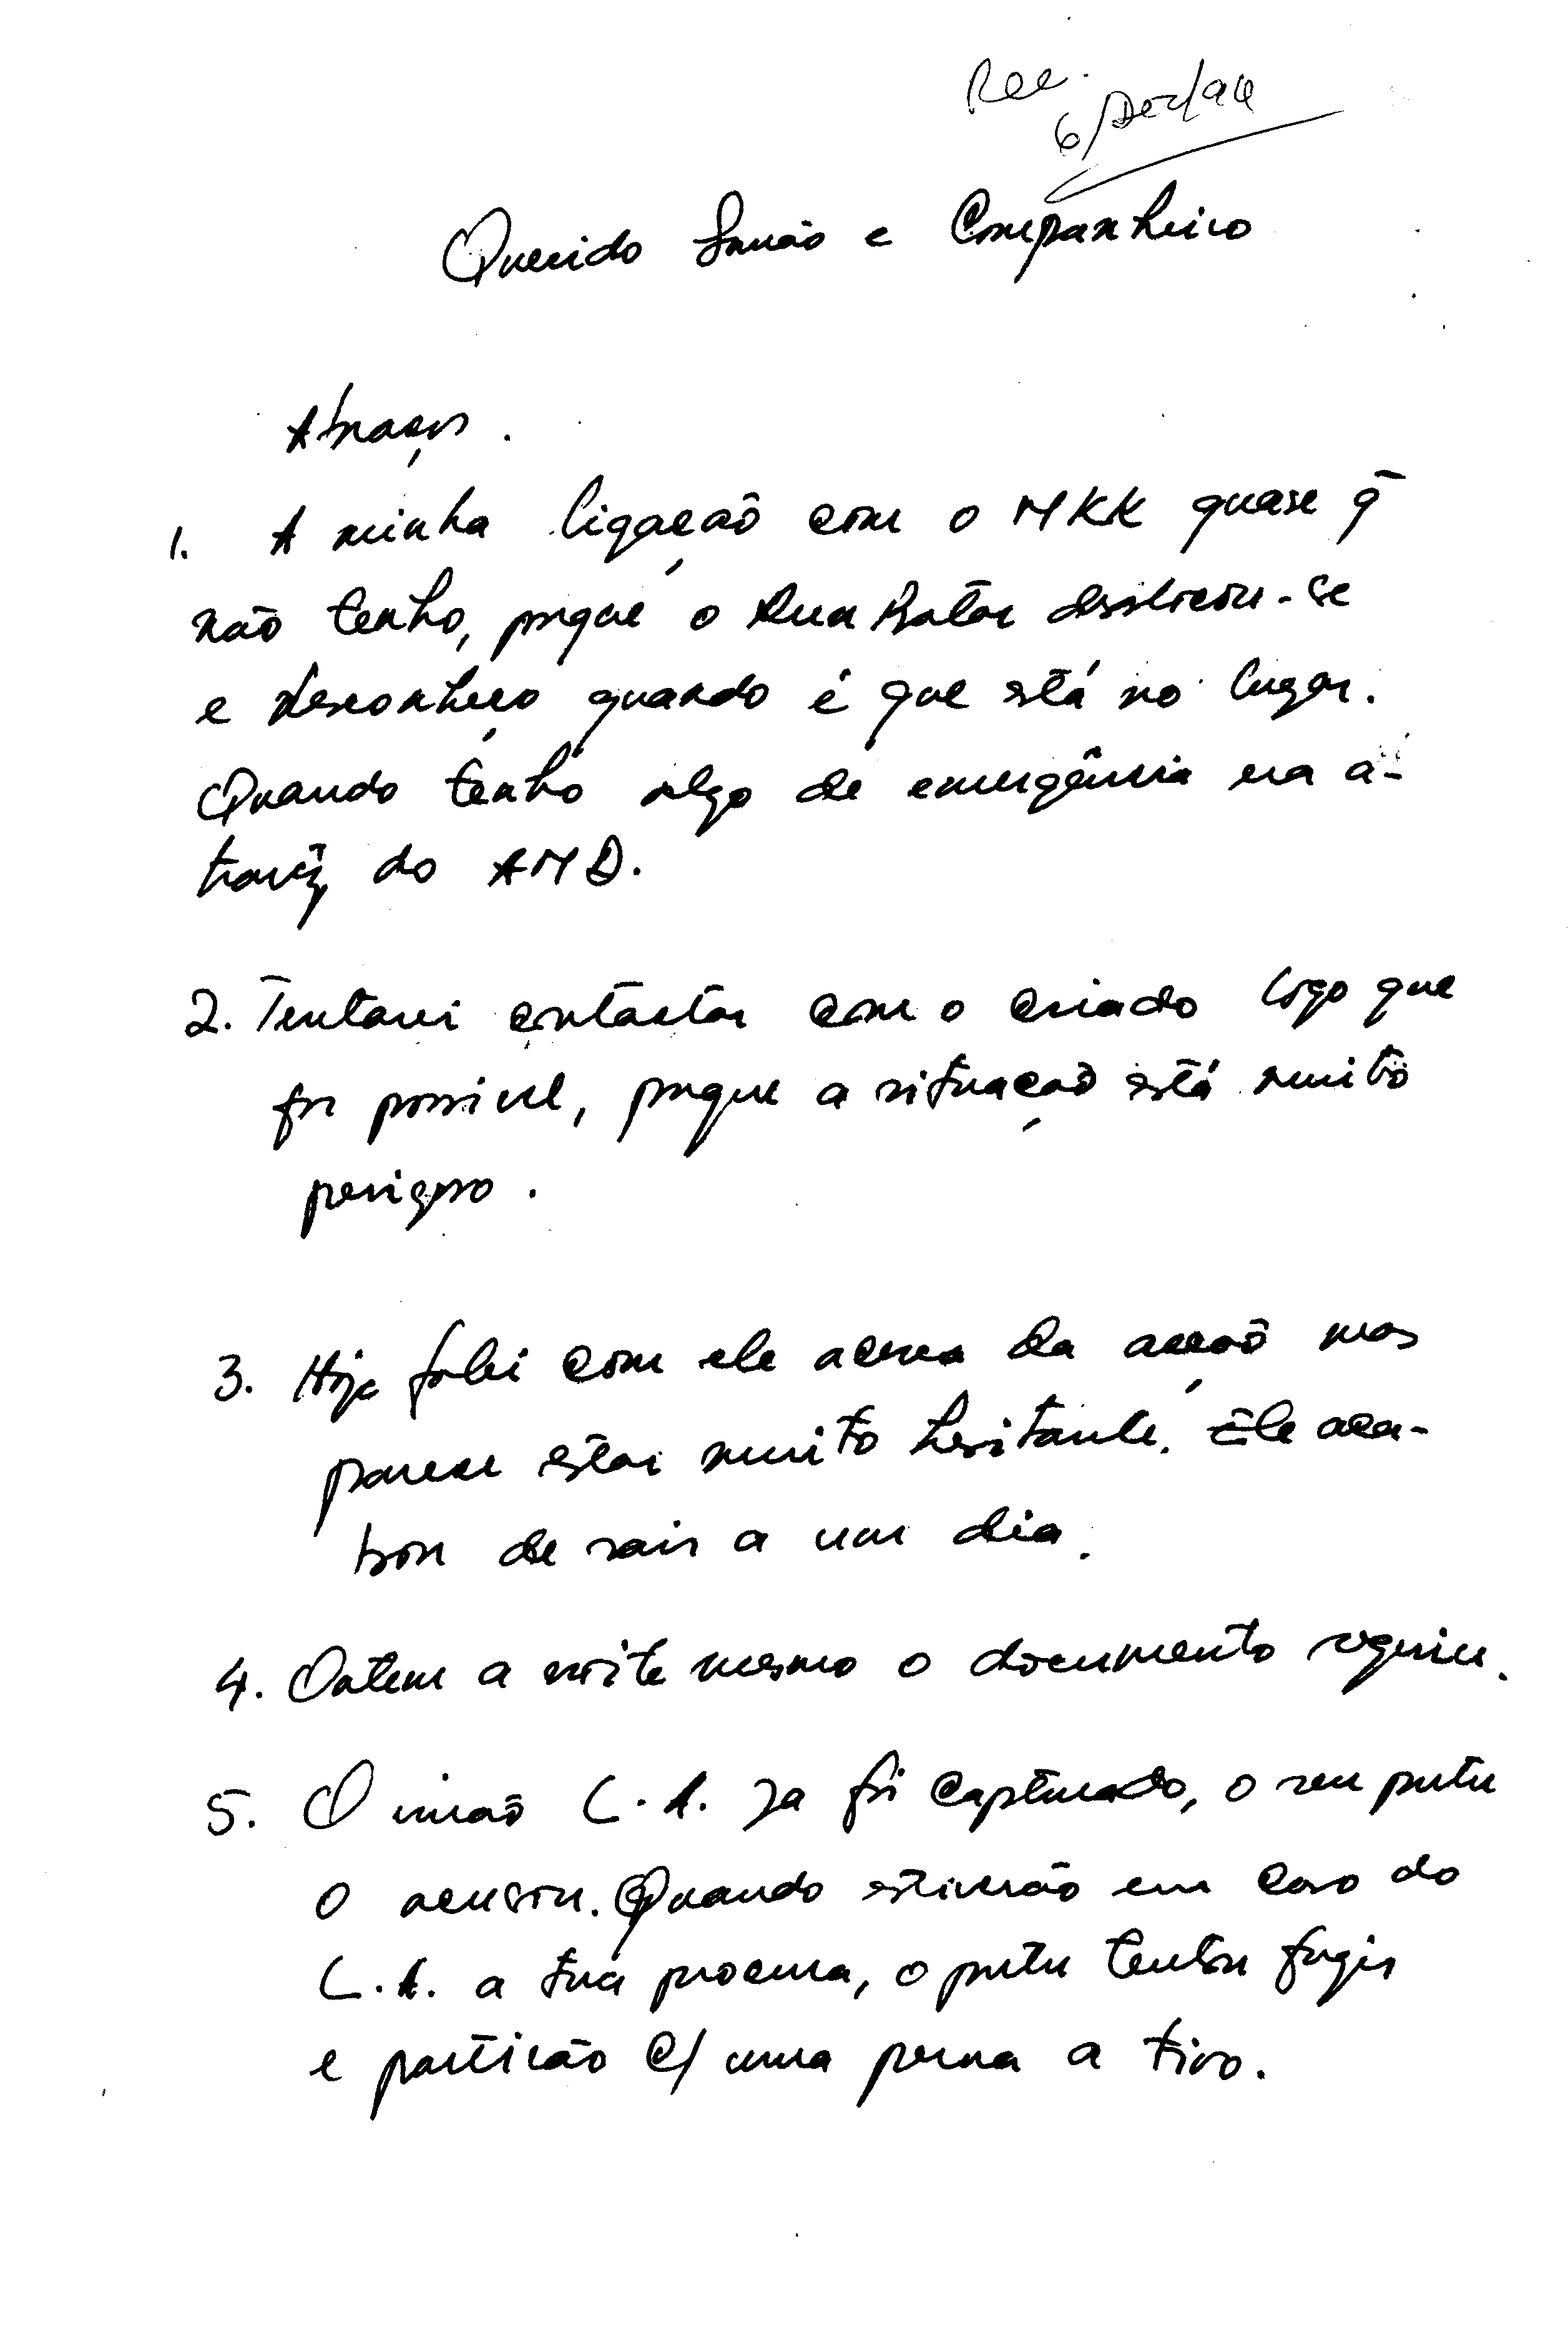 Rec.
6/Dez/94
Querido Irmão e Companheiro
Abraços.
1. A minha ligação com o MKK quase q̃
não tenho, porque o Rua Batar deslocou-se
e desconheço quando é que está no lugar.
Quando tenho algo de emergência era a-
través do AMD.
2. Tentarei contactar com o criado logo que
for possivel, porque a situação está muito
perigoso.
3. Hoje falei com ele acerca da acção mas
parece estar muito hesitante. Ele aca-
bou de sair a um dia.
4. Ontem a noite mesmo o documento seguiu.
5. O irmão L.A. Ja foi capturado, o seu putu
o acusou. Quando estiverão em casa do
L.A. a tua procura, o putu tentou fugir
e partirão c/ uma perna a tiro.